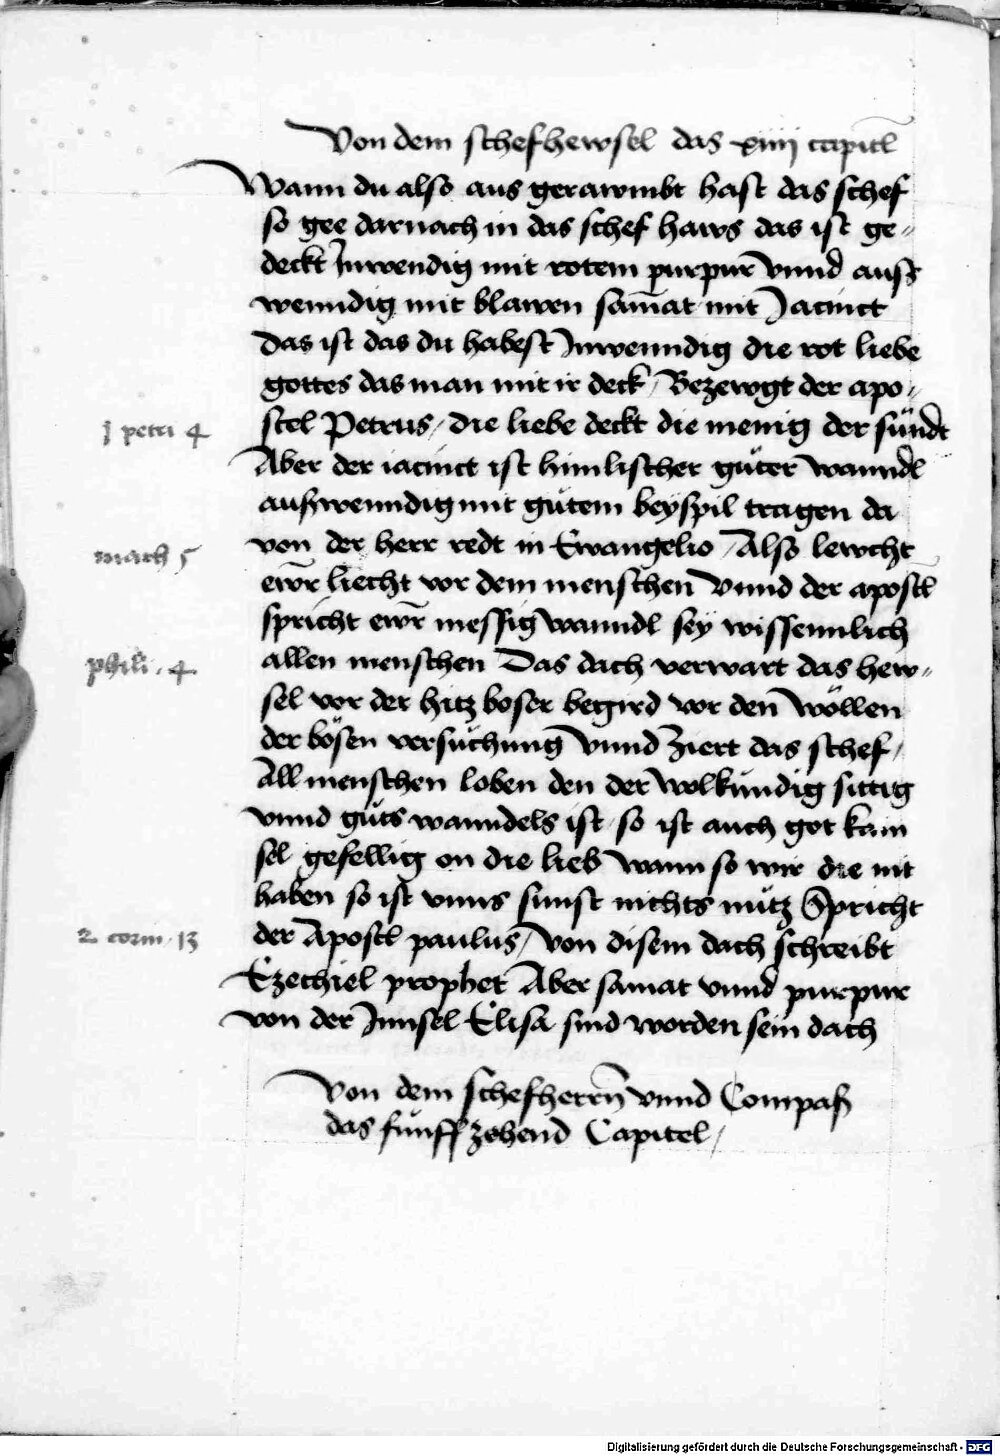 Von dem schefhewsel das xiiij capitl
Wann du also aus gerawmbt hast das schef
so gee darnach in das schef haws das ist ge⸗
deckt Inwendig mit rotem purpur̄ vnnd auss
wenndig mit blawen sam̄at mit Jacinct
Das ist das du habest Inwenndig die rot liebe
gottes das man mit ir deck / Bezewgt der apo⸗
j petri 4 stel Petrus / die liebe deckt die menig der sünd̄t
Aber der iacinct ist himlischer gůter wannd̄l
auswenndig mit gůtem beyspil tragen da
math 5 von der herr redt in Ewangelio / Also lewcht
ew̄r liecht vor dem menschen Vnnd der apostl̄
spricht ew̄r messig wanndl sey wissennlich
phili . 4 allen menschen Das dach verwart das hew⸗
sel vor der hitz boser begird vor den̄ wöllen
der bösen versůchunḡ vnnd Ziert das schef /
All menschen loben den der wolkündig sittig
vnnd gůts wanndels ist so ist auch got kain
sel gefellig on die lieb wann so wir die nit
haben so ist vnns sunst nichts nütz Spricht
2 corin . 13 der Apostl paulus / Von disem dach schreibt
Ezechiel prophet Aber samat vnnd purpur
von der Innsel Elisa sind worden sein dach
Von dem schefherrn̄ vnnd Compass
das fünffzehend Capitel /
Digitalisierung gefördert durch die Deutsche Forschungsgemeinschaft - DFG